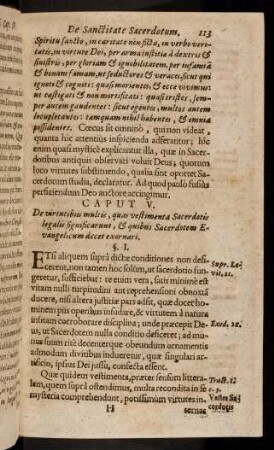 De Sanctitate Sacerdotum, 113
Spiritu sancto, in caritate non ficta, in verbo veritatis,
in virtute Dei, per arma institiæ à dextris &
sinistris, per gloriam & ignobilitatem, per infamiã
& bonam famam, ut seductores & veraces, sicut qui
ignoti & cogniti: quasi morientes, & ecce vivimus:
ut castigati & non mortificati: quasi tristes, semper
autem gaudentes: sicut egentes, multos autem
locupletantes: tamquam nihil habentes, & omnia
possidentes. Cœcus sit omninò, qui non videat,
quanta hîc attentiùs inspicienda asserantur; hîc
enim quasi mysticè explicantur illa, quæ in Sacerdotibus
antiquis observari voluit Deus; quorum
loco virtutes substituendo, qualia sint oportet Sacerdotum
studia, declaratur. Ad quod paulò fusiùs
persiciendum Deo auctore accingimur.
CAPUT V.
De virtutibus multis, quas vestimenta Sacerdotis
legalis significarunt, & quibus Sacerdotem Evangelicum
decet exornari.
§. I.
ETsi aliquem suprà dictæ conditiones non deficerent,
non tamen hoc solùm, ut sacerdotio fungeretur,
sufficiebat: re enim vera, satis minimè est
vitam nulli turpitudini aut reprehensioni obnoxiã
ducere, nisi altera justitiæ pars adsit, quæ docet hominem
piis operibus insudare, & virtutem à natura
insitam corroborare disciplina; unde præcepit Deus,
ut Sacerdotem nulla conditio desiceret; ad munus
suum ritè decenterque obeundum vestimentis
admodum divitibus indueretur, quæ singulari artificio,
ipsius Dei jussu, consecta essent.
Quæ quidem vestimenta, præter sensum litteralem,
quem suprà ostendimus, multa recondita in se
mysteria comprehendunt, potissimùm virtutes in-
H ternas
Supr. Levit.
21.
Exod. 28.
Tract. 12
c. 3.
Vestes Sacerdotis